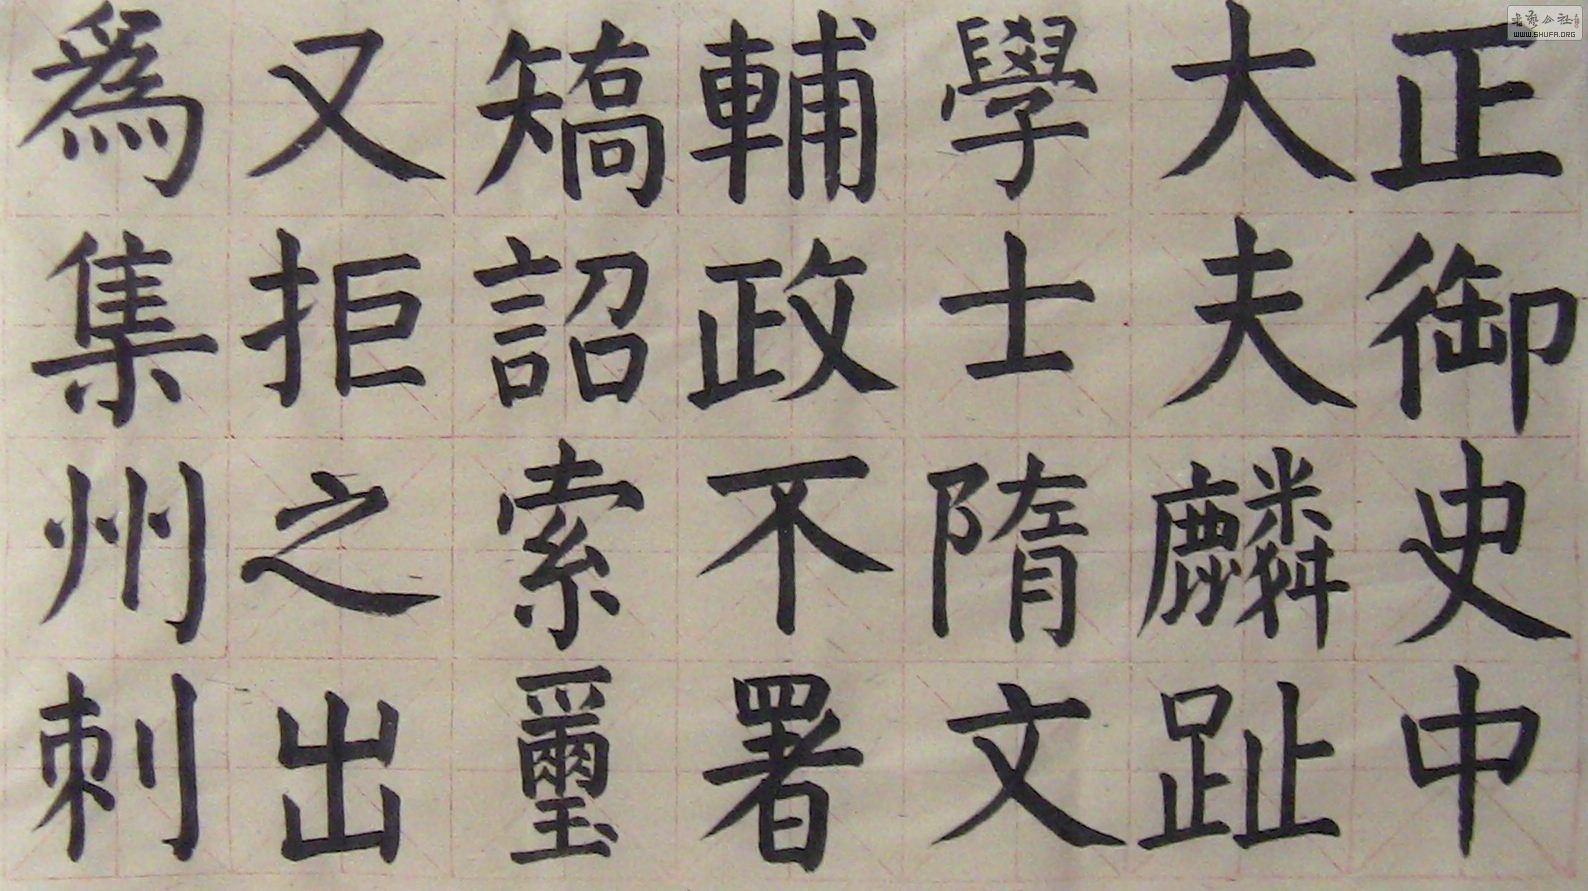 正御史中
大夫麟趾
學士隋文
輔政不署
矯詔索璽
又拒之出
為集州刺
WWW.SHUFA.ORG